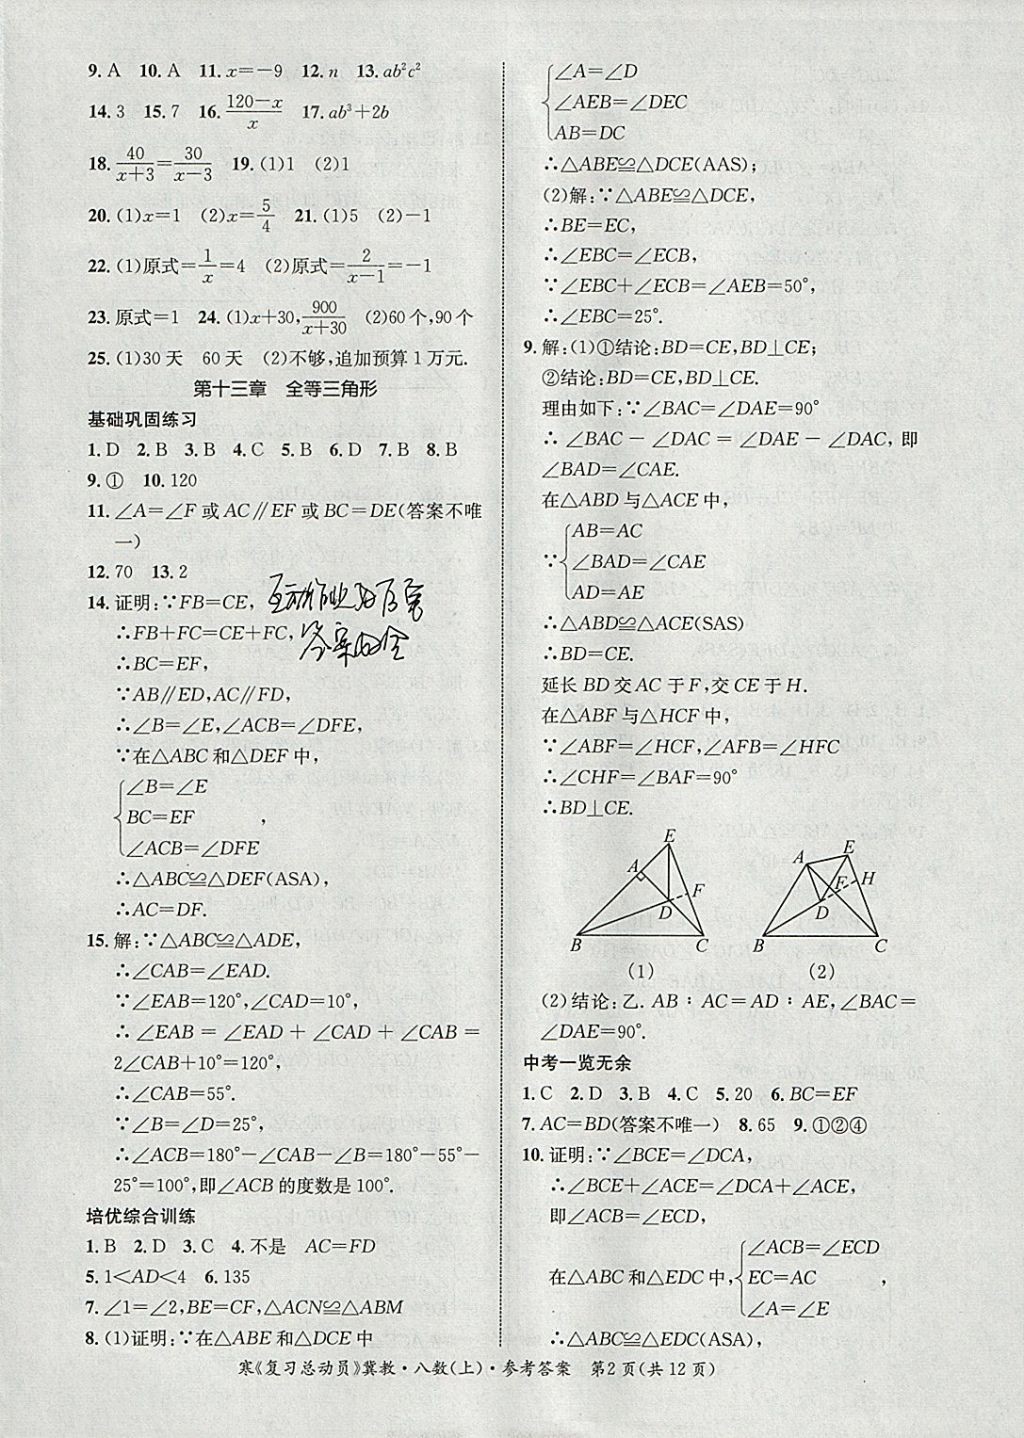 9. A　10. A　11. x=-9　12. n　13. ab²c²
14. 3　15. 7　16. (120-x)/x　17. ab³+2b
18. 40/(x+3)=30/(x-3)　19. (1)1　(2)1
20. (1)x=1　(2)x=5/4　21. (1)5　(2)-1
22. (1)原式=1/x=4　(2)原式=2/(x-1)=-1
23. 原式=1　24. (1)x+30, 900/(x+30)　(2)60个,90个
25. (1)30天　60天　(2)不够,追加预算1万元.
第十三章　全等三角形
基础巩固练习
1. D　2. B　3. B　4. C　5. B　6. D　7. B　8. B
9. ①　10. 120
11. ∠A=∠F或AC∥EF或BC=DE(答案不唯
一)
12. 70　13. 2
14. 证明:∵FB=CE,
∴FB+FC=CE+FC,
答案
∴BC=EF,
∵AB∥ED,AC∥FD,
∴∠B=∠E,∠ACB=∠DFE,
∵在△ABC和△DEF中,
∠B=∠E
BC=EF　,
∠ACB=∠DFE
∴△ABC≌△DEF(ASA),
∴AC=DF.
15. 解:∵△ABC≌△ADE,
∴∠CAB=∠EAD.
∵∠EAB=120°,∠CAD=10°,
∴∠EAB=∠EAD+∠CAD+∠CAB=
2∠CAB+10°=120°,
∴∠CAB=55°.
∵∠B=∠D=25°,
∴∠ACB=180°-∠CAB-∠B=180°-55°-
25°=100°,即∠ACB的度数是100°.
培优综合训练
1. B　2. D　3. C　4. 不是　AC=FD
5. 1<AD<4　6. 135
7. ∠1=∠2,BE=CF,△ACN≌△ABM
8. (1)证明:∵在△ABE和△DCE中
∠A=∠D
∠AEB=∠DEC
AB=DC
∴△ABE≌△DCE(AAS);
(2)解:∵△ABE≌△DCE,
∴BE=EC,
∴∠EBC=∠ECB,
∵∠EBC+∠ECB=∠AEB=50°,
∴∠EBC=25°.
9. 解:(1)①结论:BD=CE,BD⊥CE;
②结论:BD=CE,BD⊥CE.
理由如下:∵∠BAC=∠DAE=90°
∴∠BAC-∠DAC=∠DAE-∠DAC,即
∠BAD=∠CAE.
在△ABD与△ACE中,
AB=AC
∵ ∠BAD=∠CAE
AD=AE
∴△ABD≌△ACE(SAS)
∴BD=CE.
延长BD交AC于F,交CE于H.
在△ABF与△HCF中,
∵∠ABF=∠HCF,∠AFB=∠HFC
∴∠CHF=∠BAF=90°
∴BD⊥CE.
E
A
F
D
B
C
(1)
A
E
F
H
D
B
C
(2)
(2)结论:乙. AB∶AC=AD∶AE,∠BAC=
∠DAE=90°.
中考一览无余
1. C　2. D　3. B　4. C　5. 20　6. BC=EF
7. AC=BD(答案不唯一)　8. 65　9. ①②④
10. 证明:∵∠BCE=∠DCA,
∴∠BCE+∠ACE=∠DCA+∠ACE,
即∠ACB=∠ECD,
∠ACB=∠ECD
在△ABC和△EDC中, EC=AC　,
∠A=∠E
∴△ABC≌△EDC(ASA),
寒《复习总动员》冀教·八数(上)·参考答案　第2页(共12页)